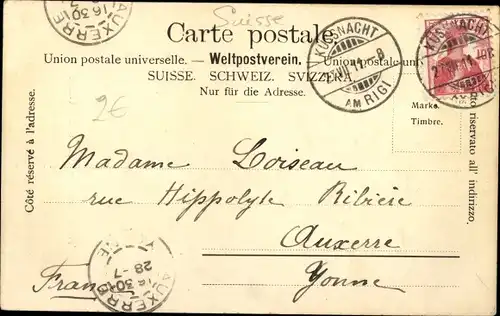 Suisse
Carte postale.
Union postale universelle. — Weltpostverein. — Unione postale uni
SUISSE. SCHWEIZ. SVIZZERA.
Nur für die Adresse.
KÜSSNACHT
AM RIGI
KÜSSNACHT
AUXERRE
16 30
Marke.
Timbre.
Côté réservé à l'adresse.
riservato all' indirizzo.
2€
Madame Loiseau
rue Hippolyte Ribière
Auxerre
Yonne
Fran
AUXERRE
16 30
28-7
YONNE